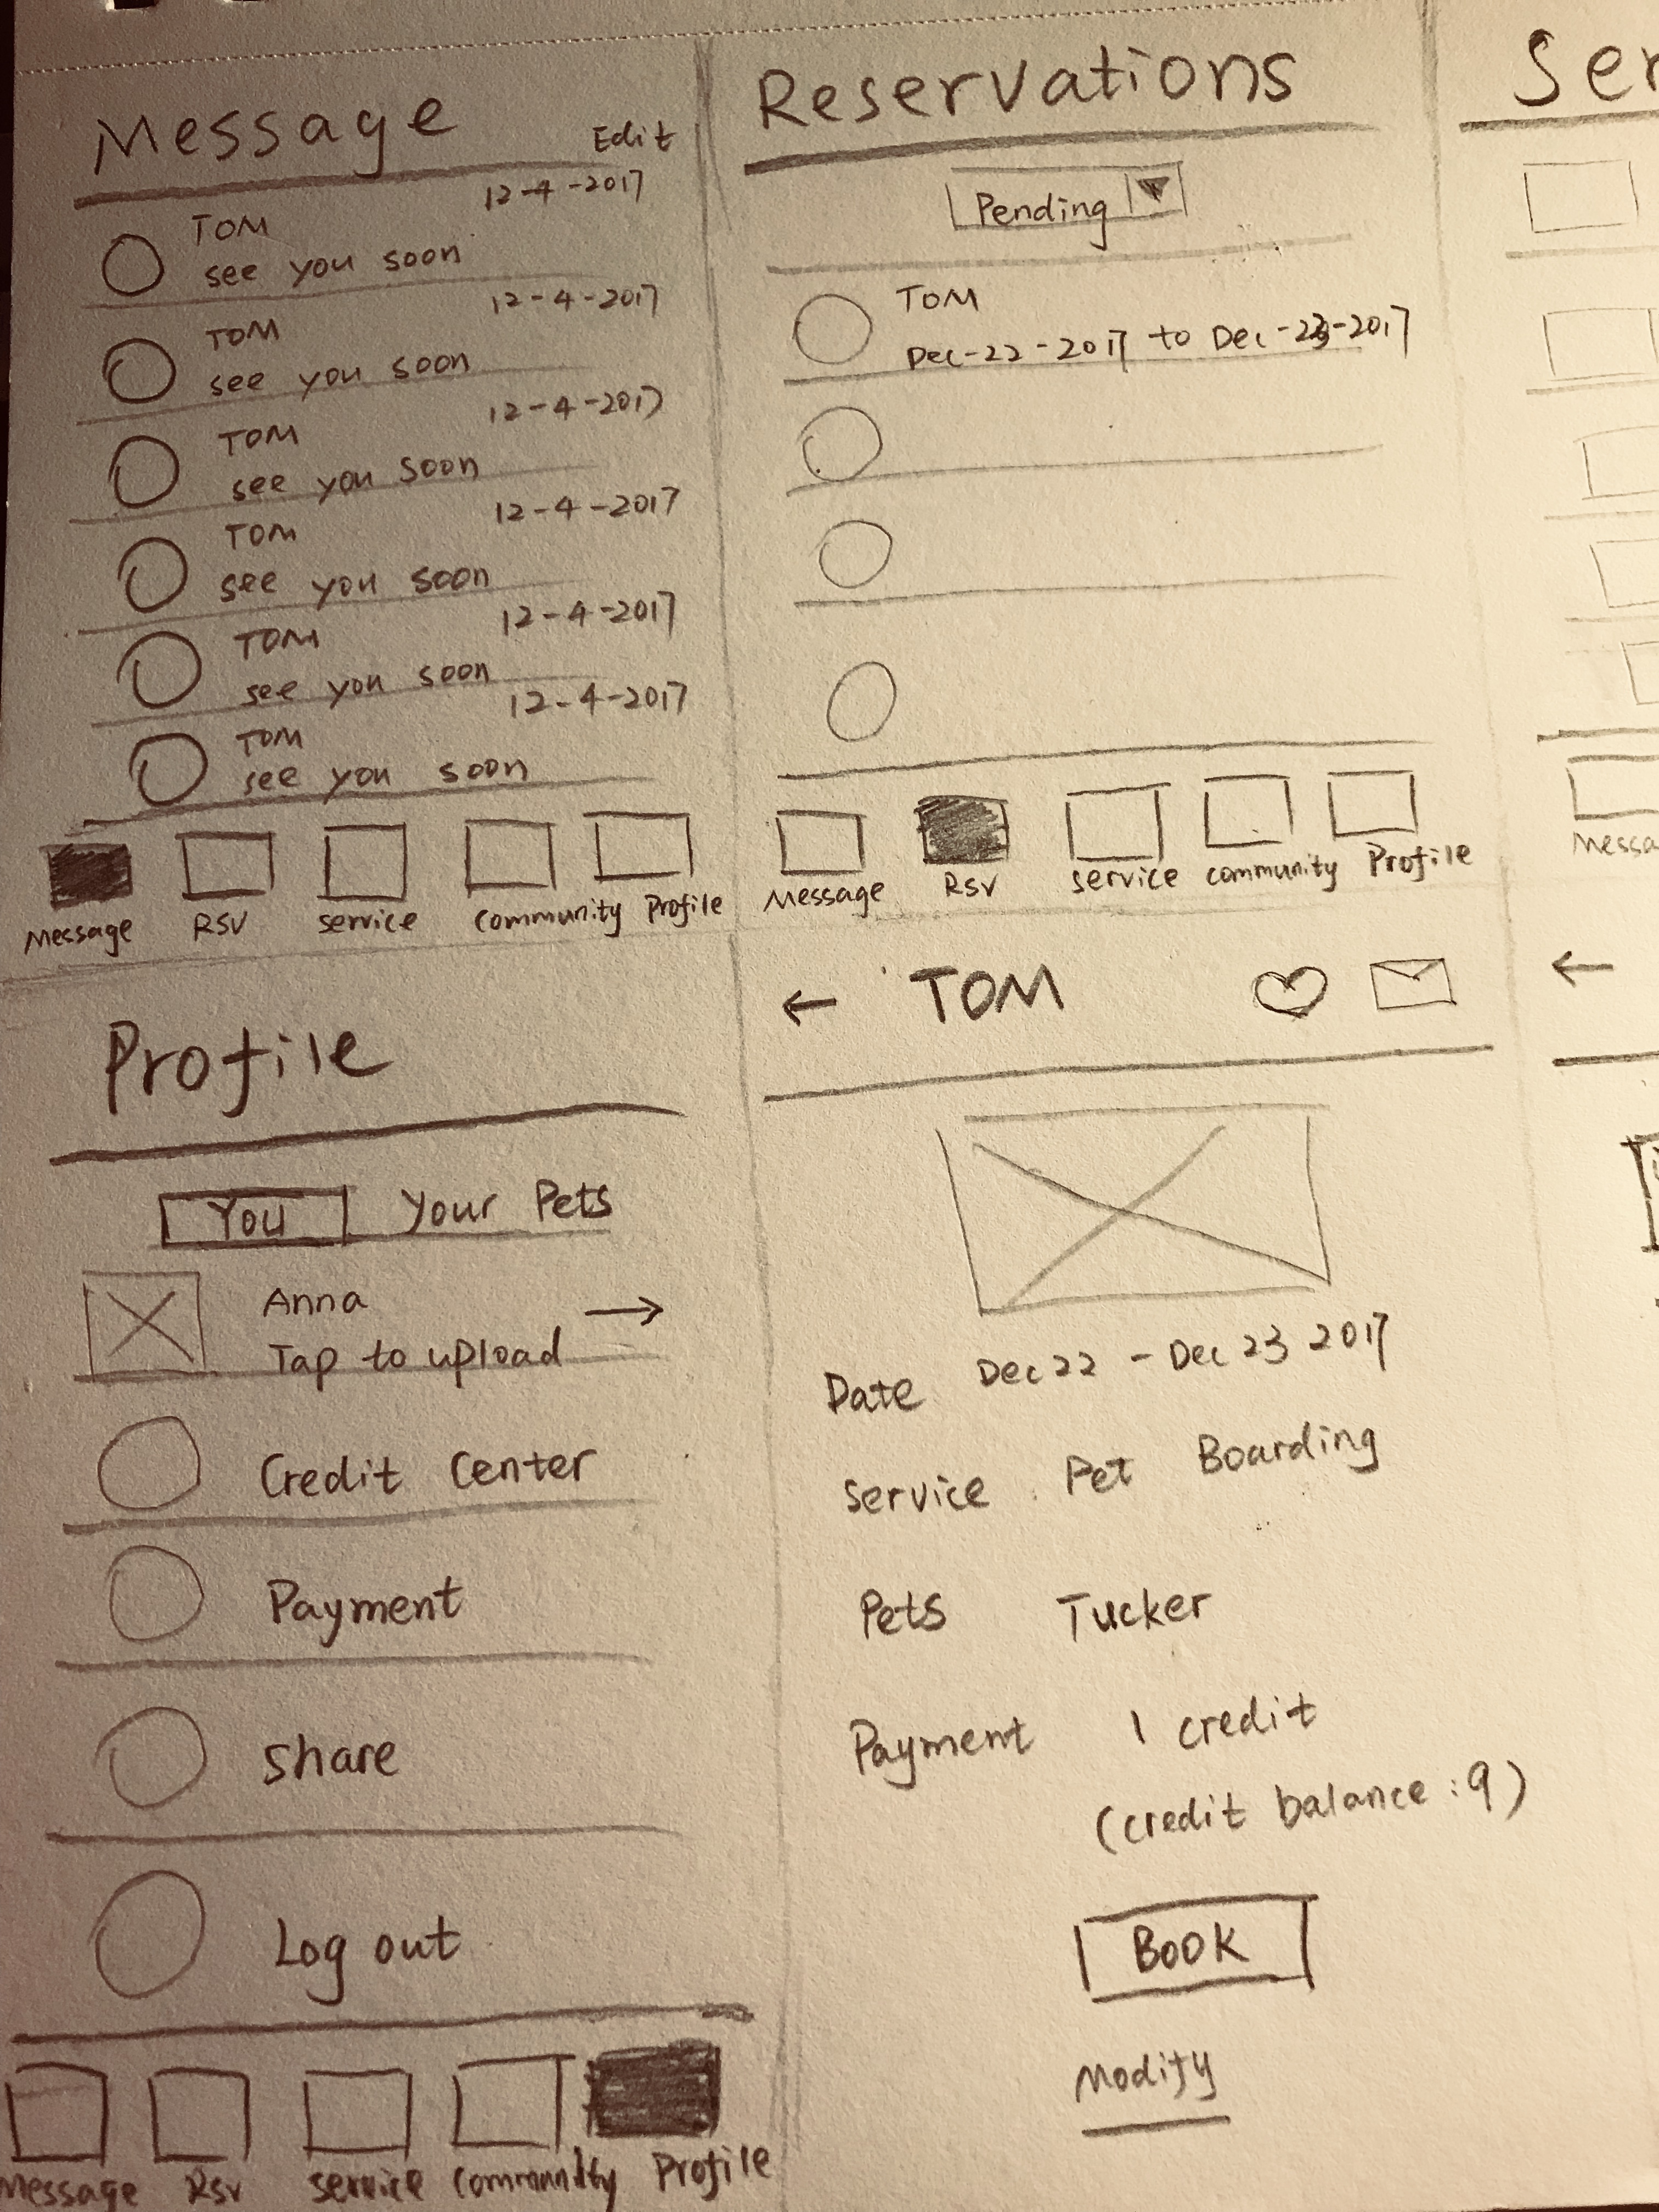 Message
Edit
12-4-2017
TOM
see you soon
12-4-2017
TOM
see you soon
12-4-2017
TOM
see you soon
12-4-2017
TOM
see you soon
12-4-2017
TOM
see you soon
12-4-2017
TOM
see you soon
Message RSV service community Profile
Reservations
Pending
TOM
Dec-22-2017 to Dec-23-2017
Message RSV service community Profile
Ser
Messa
Profile
You Your Pets
Anna
Tap to upload
Credit Center
Payment
share
Log out
Message RSV service community Profile
← TOM
Date Dec 22 - Dec 23 2017
service Pet Boarding
Pets Tucker
Payment 1 credit
(credit balance : 9)
BOOK
Modify